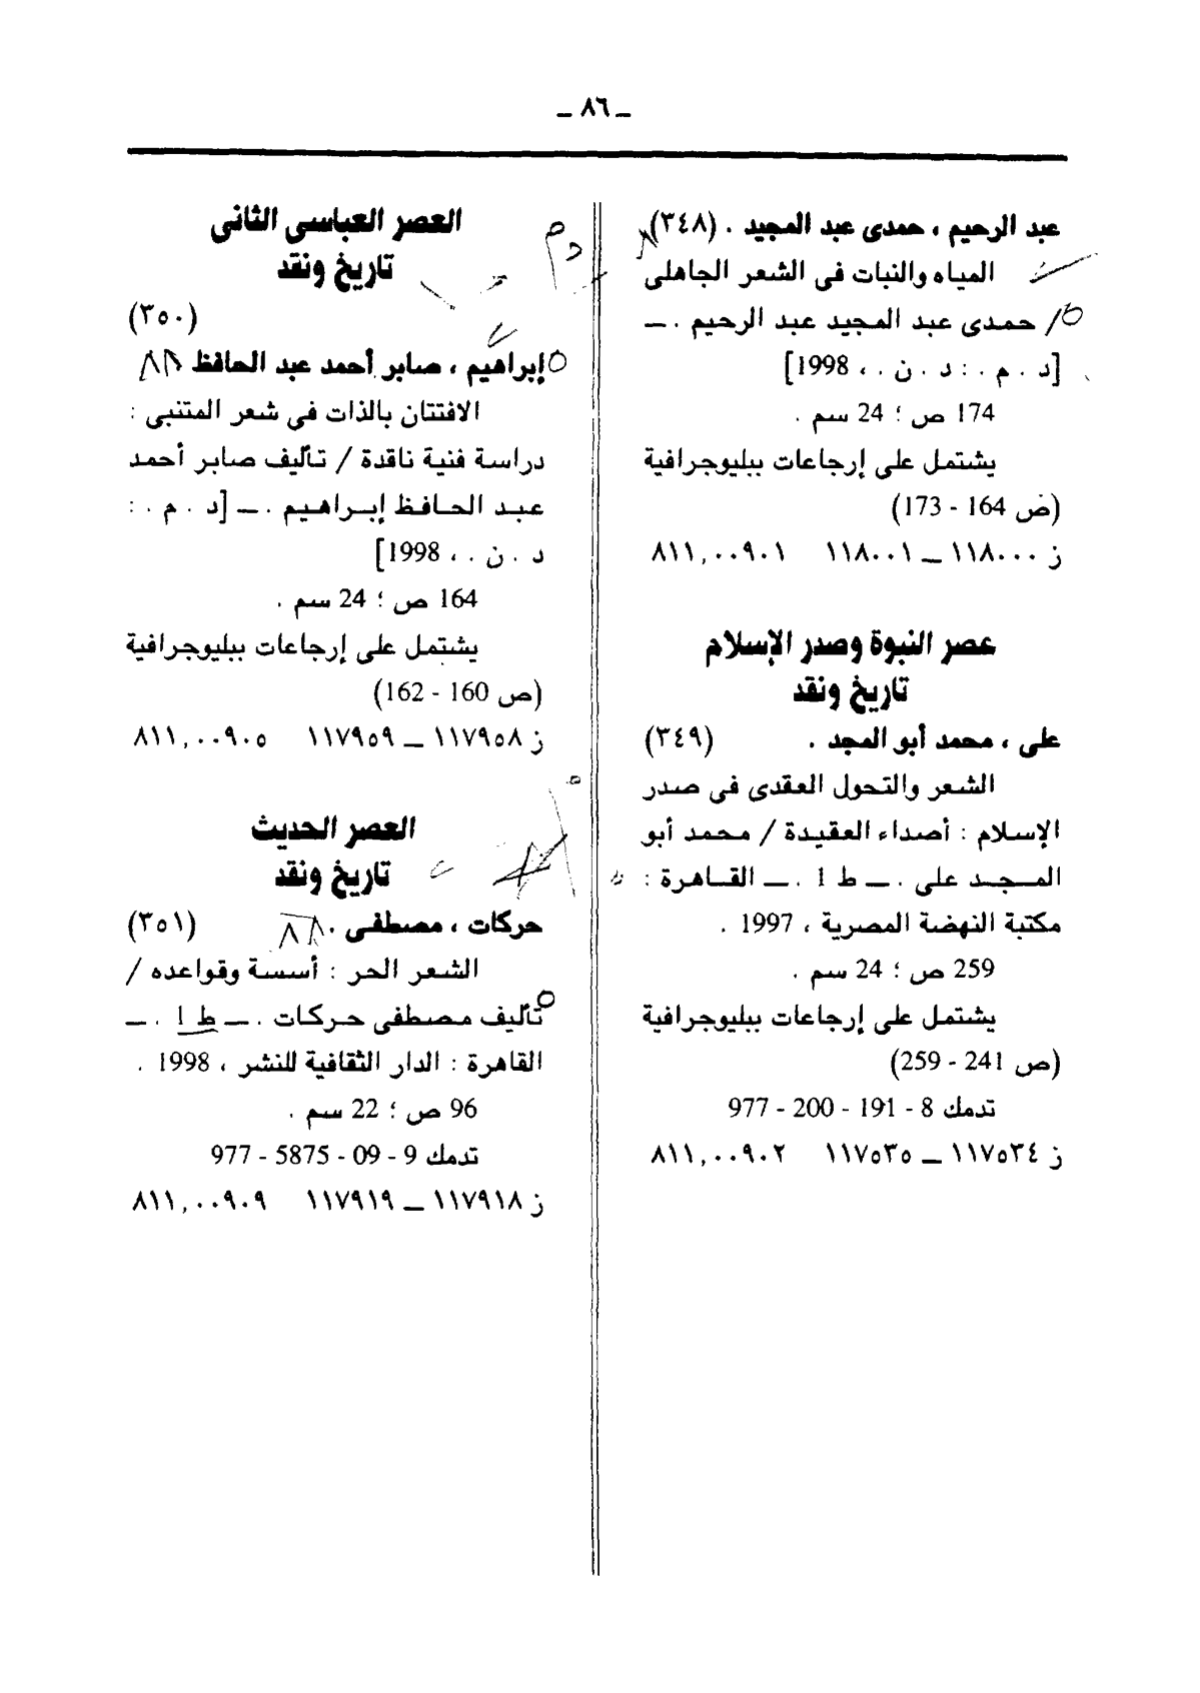 ـ ٨٦ ـ
عبد الرحيم ، حمدى عبد المجيد . (٣٤٨)
المياه والنبات فى الشعر الجاهلى
/ حمدى عبد المجيد عبد الرحيم . ــ
[د . م . : د . ن . ، 1998]
174 ص ؛ 24 سم .
يشتمل على إرجاعات ببليوجرافية
(ص 164 - 173)
ز ١١٨٠٠٠ ــ ١١٨٠٠١ ٨١١,٠٠٩٠١
عصر النبوة وصدر الإسلام
تاريخ ونقد
على ، محمد أبو المجد . (٣٤٩)
الشعر والتحول العقدى فى صدر
الإسلام : أصداء العقيدة / محمد أبو
المجد على . ــ ط ١ . ــ القاهرة :
مكتبة النهضة المصرية ، 1997 .
259 ص ؛ 24 سم .
يشتمل على إرجاعات ببليوجرافية
(ص 241 - 259)
تدمك 8 - 191 - 200 - 977
ز ١١٧٥٣٤ ــ ١١٧٥٣٥ ٨١١,٠٠٩٠٢
العصر العباسى الثانى
تاريخ ونقد
(٣٥٠)
إبراهيم ، صابر أحمد عبد الحافظ
الافتتان بالذات فى شعر المتنبى :
دراسة فنية ناقدة / تأليف صابر أحمد
عبد الحافظ إبراهيم . ــ [د . م . :
د . ن . ، 1998]
164 ص ؛ 24 سم .
يشتمل على إرجاعات ببليوجرافية
(ص 160 - 162)
ز ١١٧٩٥٨ ــ ١١٧٩٥٩ ٨١١,٠٠٩٠٥
العصر الحديث
تاريخ ونقد
حركات ، مصطفى . (٣٥١)
الشعر الحر : أسسة وقواعده /
تأليف مصطفى حركات . ــ ط ١ . ــ
القاهرة : الدار الثقافية للنشر ، 1998 .
96 ص ؛ 22 سم .
تدمك 9 - 09 - 5875 - 977
ز ١١٧٩١٨ ــ ١١٧٩١٩ ٨١١,٠٠٩٠٩